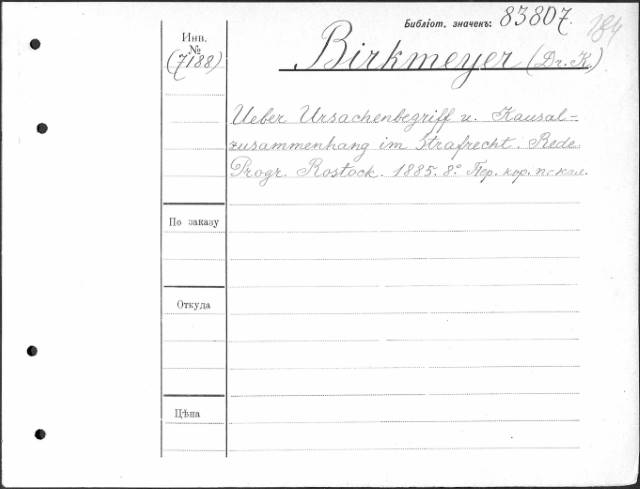 Библіот. значекъ: 83807.
184
Инв.
№
(7188)
Birkmeyer (Dr. K.)
Ueber Ursachenbegriff u. Kausal-
zusammenhang im Strafrecht. Rede.
Progr. Rostock. 1885. 8° Пер. кор.
По заказу
Откуда
Цѣна